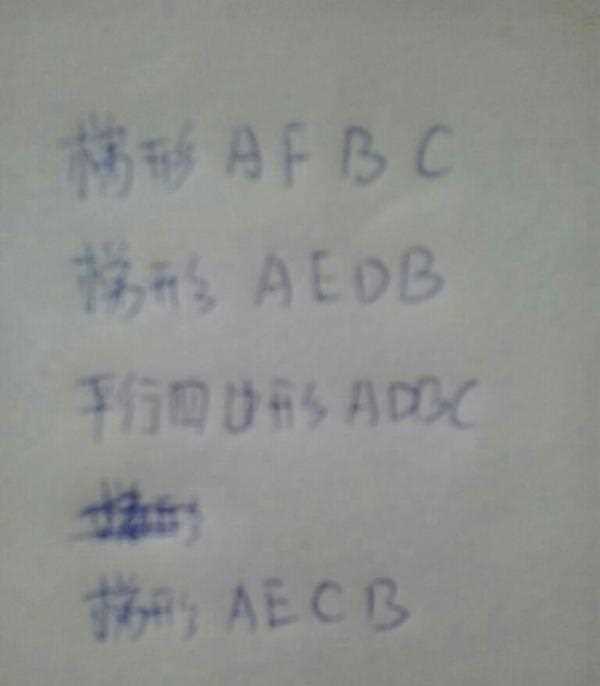 梯形 AFBC
梯形 AEDB
平行四边形 ADBC
梯形 AECB